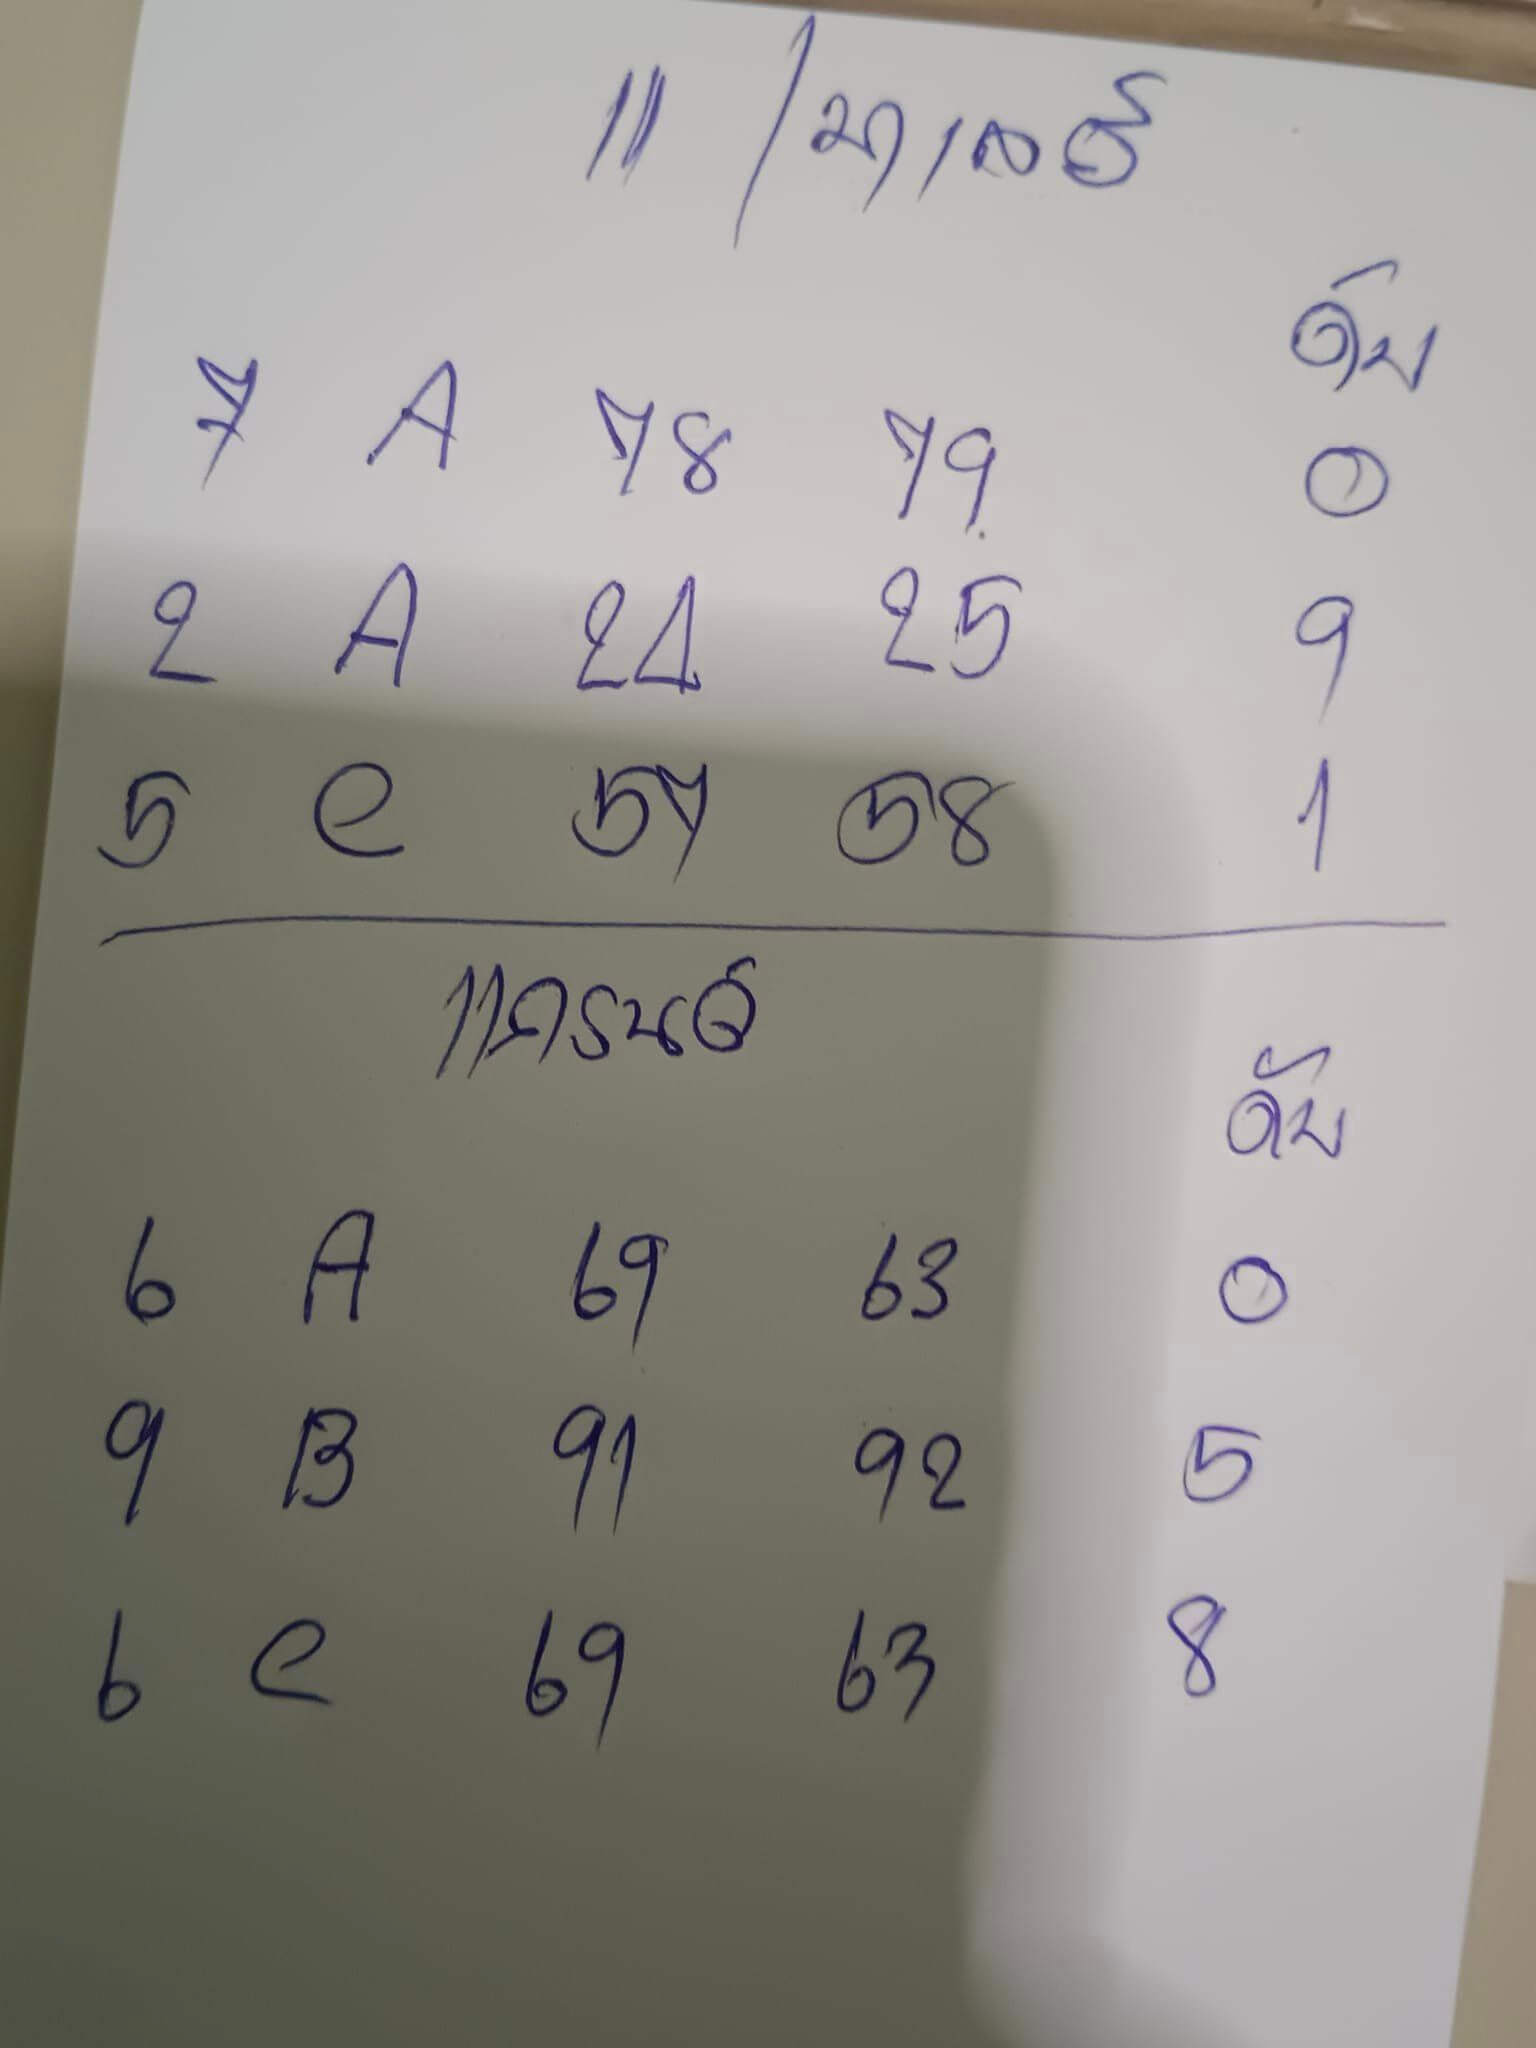 11 / มาเลย์
ดับ
7 A 78 79 0
2 A 24 25 9
5 C 57 58 1
แกรนด์
ดับ
6 A 69 63 0
9 B 91 92 5
6 C 69 63 8